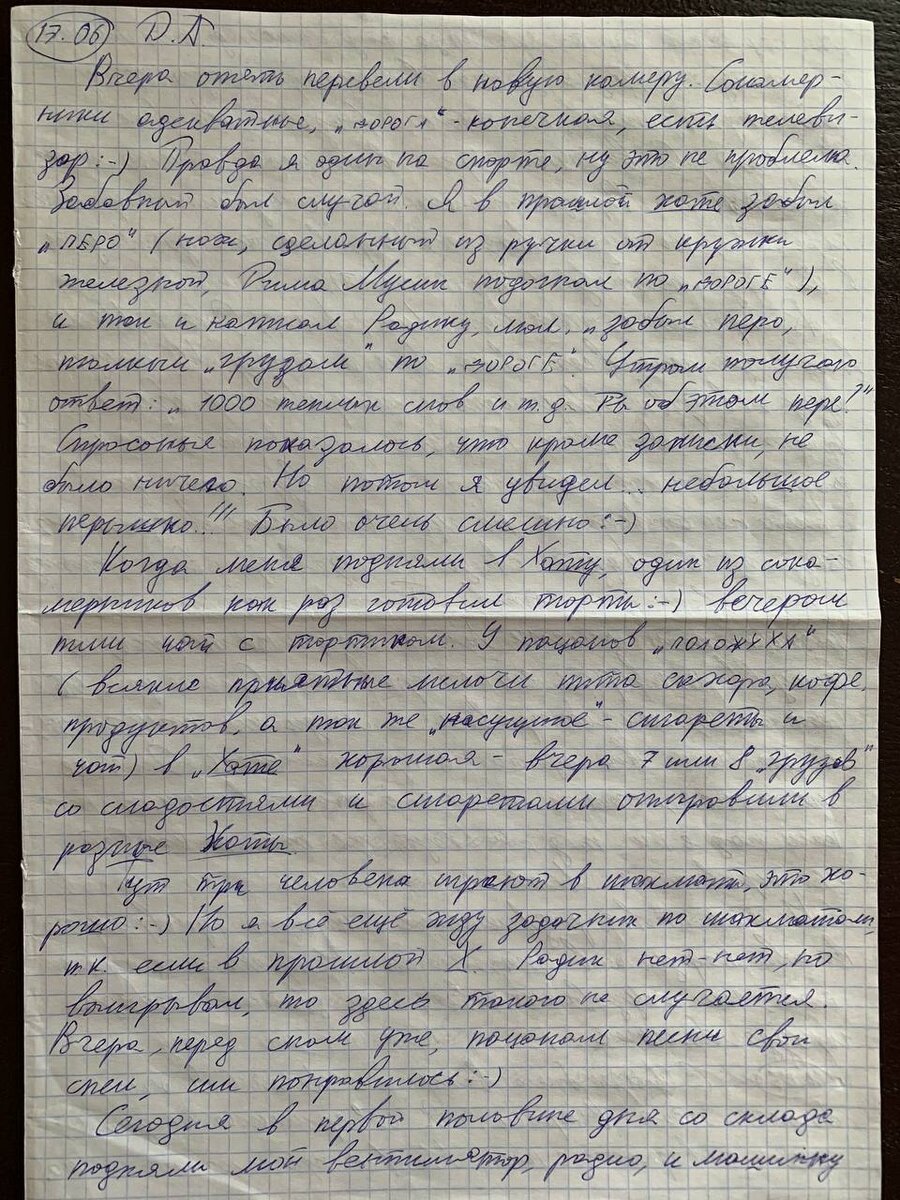 17.06 Д.А.
Вчера опять перевели в новую камеру. Сокамер-
ники адекватные, „ДОРОГА" - конечная, есть телеви-
зор :-) Правда я один на спорте, ну это не проблема.
Забавный был случай. Я в прошлой хате забыл
„ПЕРО" (нож, сделанный из ручки от кружки
железной, Дима Мусин подогнал по „ДОРОГЕ"),
и так и написал Радику, мол, „забыл перо,
толкни „грузом" по „ДОРОГЕ". Утром получаю
ответ: „1000 теплых слов и т.д. Ты об этом пере?"
Спросонья показалось, что кроме записки, не
было ничего. Но потом я увидел... небольшое
перышко!!! Было очень смешно :-)
Когда меня подняли в Хату, один из сока-
мерников как раз готовил торты :-) вечером
пили чай с тортиком. У пацанов „ПОЛОЖУХА"
(всякие приятные мелочи типа сахара, кофе,
продуктов, а так же „насущное" - сигареты и
чай) в „Хате" хорошая - вчера 7 или 8 „грузов"
со сладостями и сигаретами отправили в
разные Хаты.
Тут три человека играют в шахматы, это хо-
рошо :-) Но я всё ещё жду задачник по шахматам,
т.к. если в прошлой Х. Радик нет-нет, но
выигрывал, то здесь такого не случается.
Вчера, перед сном уже, пацанам песни свои
спел, им понравилось :-)
Сегодня в первой половине дня со склада
подняли мой вентилятор, радио, и машинку